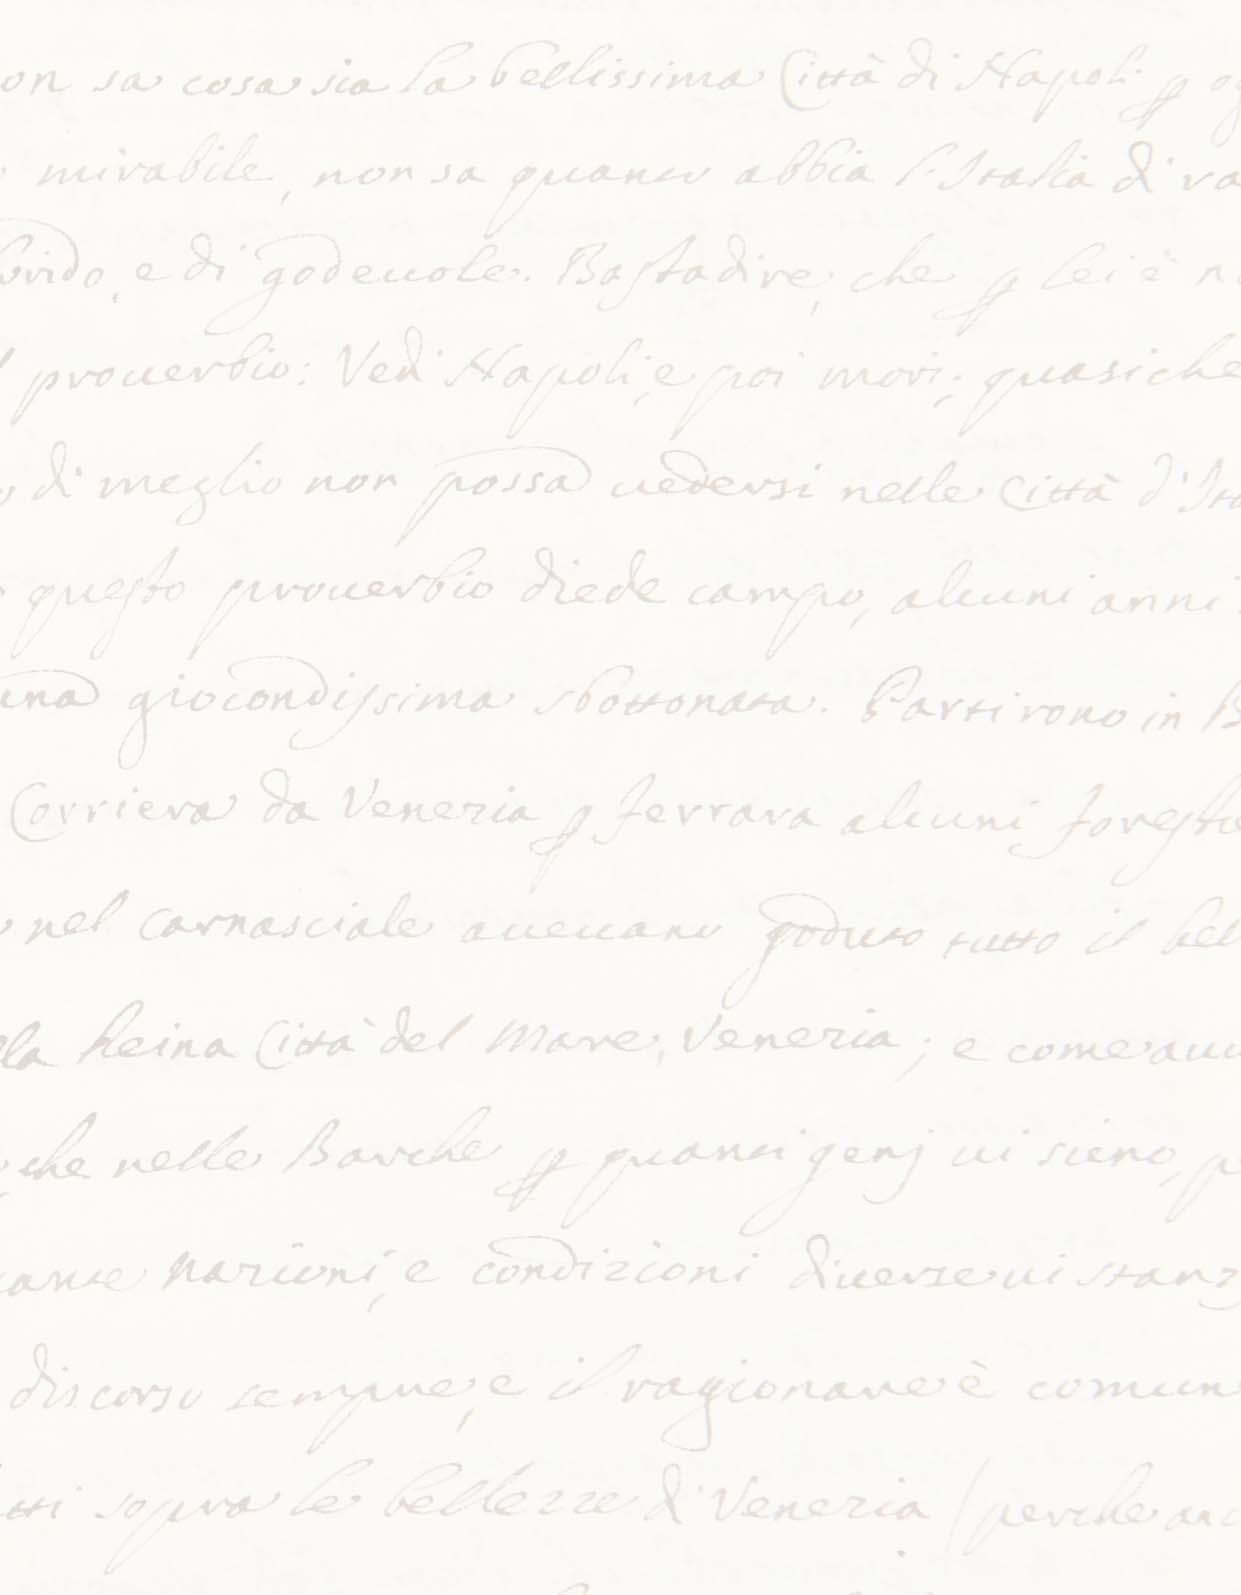 on sa cosa sia la bellissima Città di Napoli ꝑ
mirabile, non sa quanto abbia l'Italia di
e di godeuole. Basta dire, che ꝑ lei è
prouerbio: Vedi Napoli, e poi mori; quasi che
di meglio non possa uedersi nelle Città d'
questo prouerbio diede campo, alcuni anni
una giocondissima sbottonata. Partirono in
Corriera da Venezia ꝑ Ferrara alcuni
nel carnasciale aueuano goduto tutto il
la Reina Città del Mare, Venezia; e come
che nelle Barche ꝑ quanti genj ui sieno,
nazioni, e condizioni diuerse ui
discorso sempre, e il ragionare è
sopra le bellezze di Venezia (perche